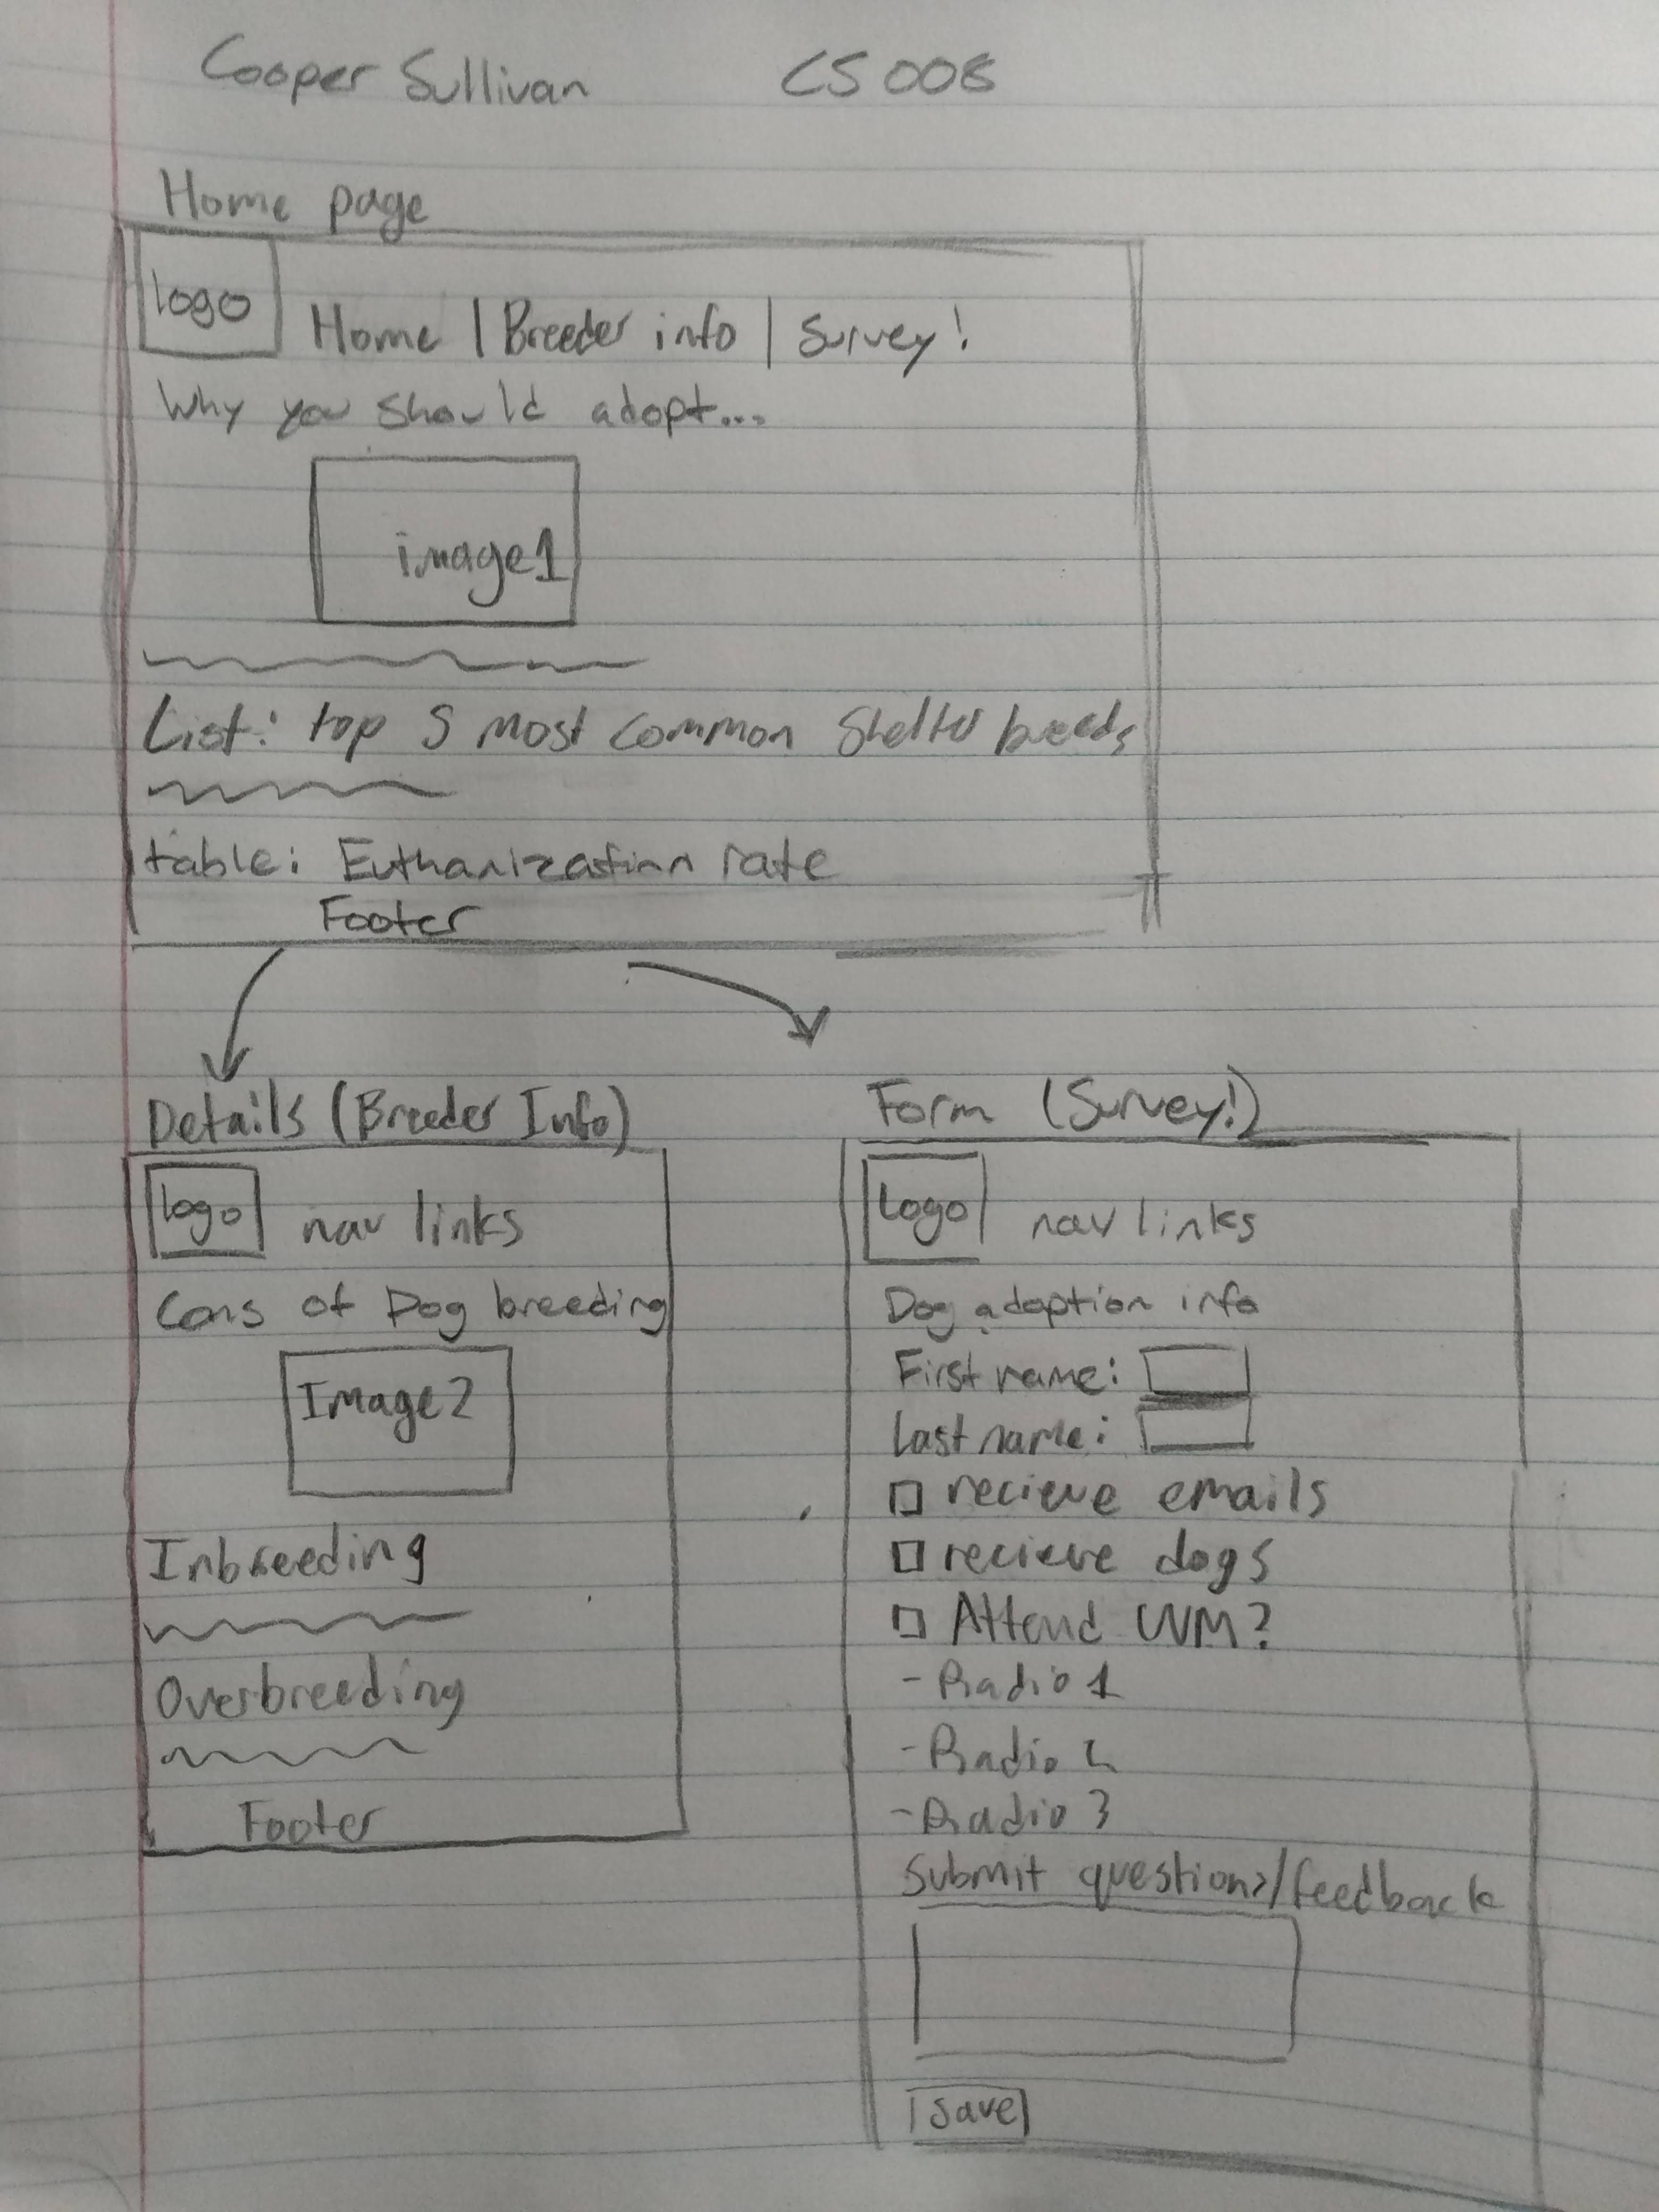 Cooper Sullivan CS 008
Home page
logo
Home | Breeder info | Survey!
Why you should adopt...
image1
List: top 5 most common Shelter breeds
table: Euthanization rate
Footer
Details (Breeder Info)
logo nav links
Cons of Dog breeding
Image2
Inbreeding
Overbreeding
Footer
Form (Survey!)
Logo nav links
Dog adoption info
First name:
Last name:
recieve emails
recieve dogs
Attend UVM?
- Radio 1
- Radio 2
- Radio 3
Submit questions/feedback
Save